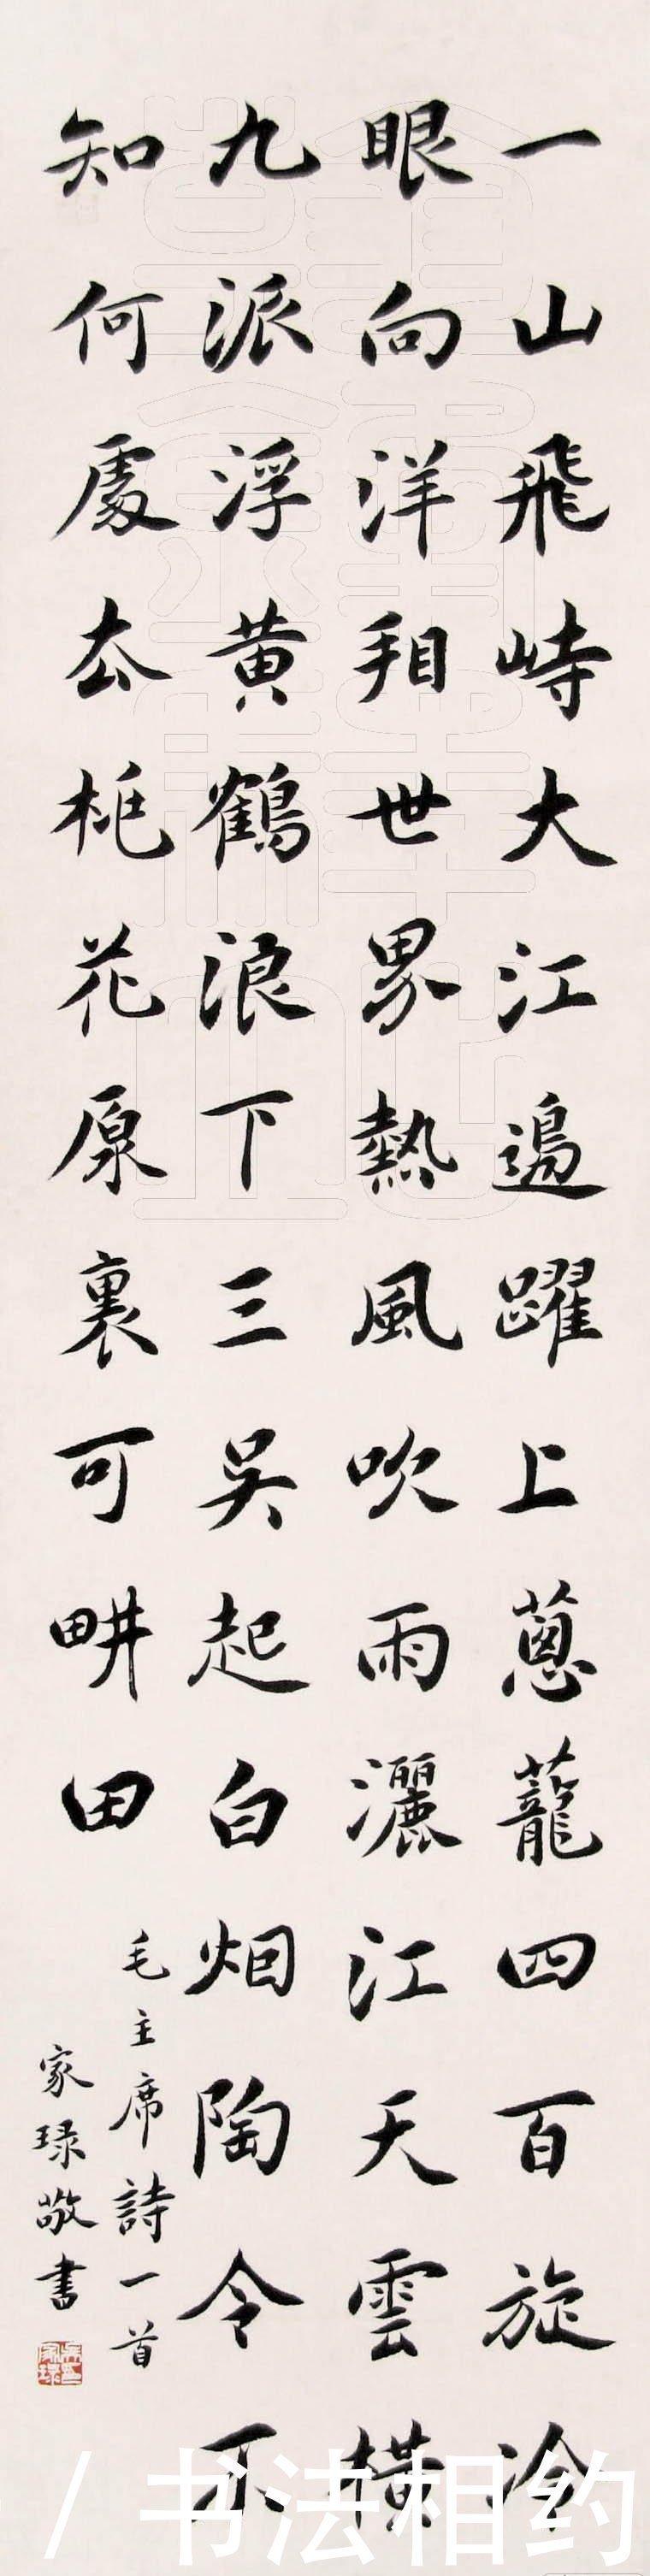 一山飛峙大江邊躍上蔥蘢四百旋冷
眼向洋看世界熱風吹雨灑江天雲橫
九派浮黄鶴浪下三吳起白烟陶令不
知何處去桃花原裏可畊田
毛主席詩一首
家琭敬書
/ 书法相约